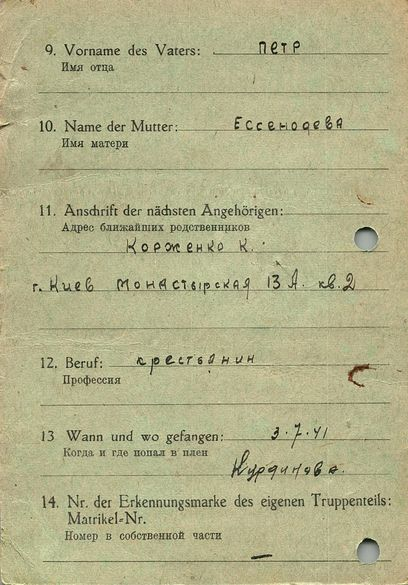 9. Vorname des Vaters: Петр
Имя отца
10. Name der Mutter: Ессенодева
Имя матери
11. Anschrift der nächsten Angehörigen:
Адрес ближайших родственников
Корженко К.
г. Киев Монастырская 13 А. кв. 2
12. Beruf: крестьянин
Профессия
13 Wann und wo gefangen: 3.7.41
Когда и где попал в плен
14. Nr. der Erkennungsmarke des eigenen Truppenteils:
Matrikel-Nr.
Номер в собственной части